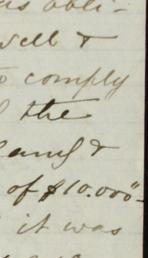 as obli-
well &
to comply
the
and &
of $10.000"-
it was